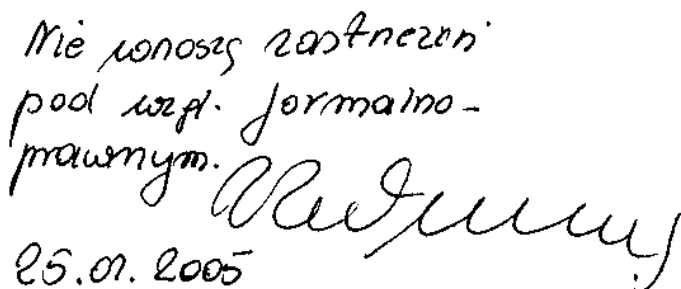 Nie wnoszę zastrzeżeń
pod wzgl. formalno-
prawnym.
25.01.2005